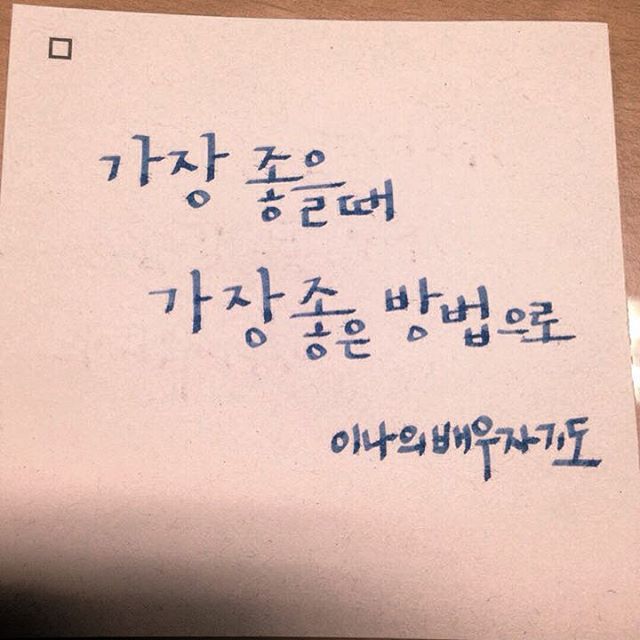 가장 좋을때
가장 좋은 방법으로
이나의배우자기도